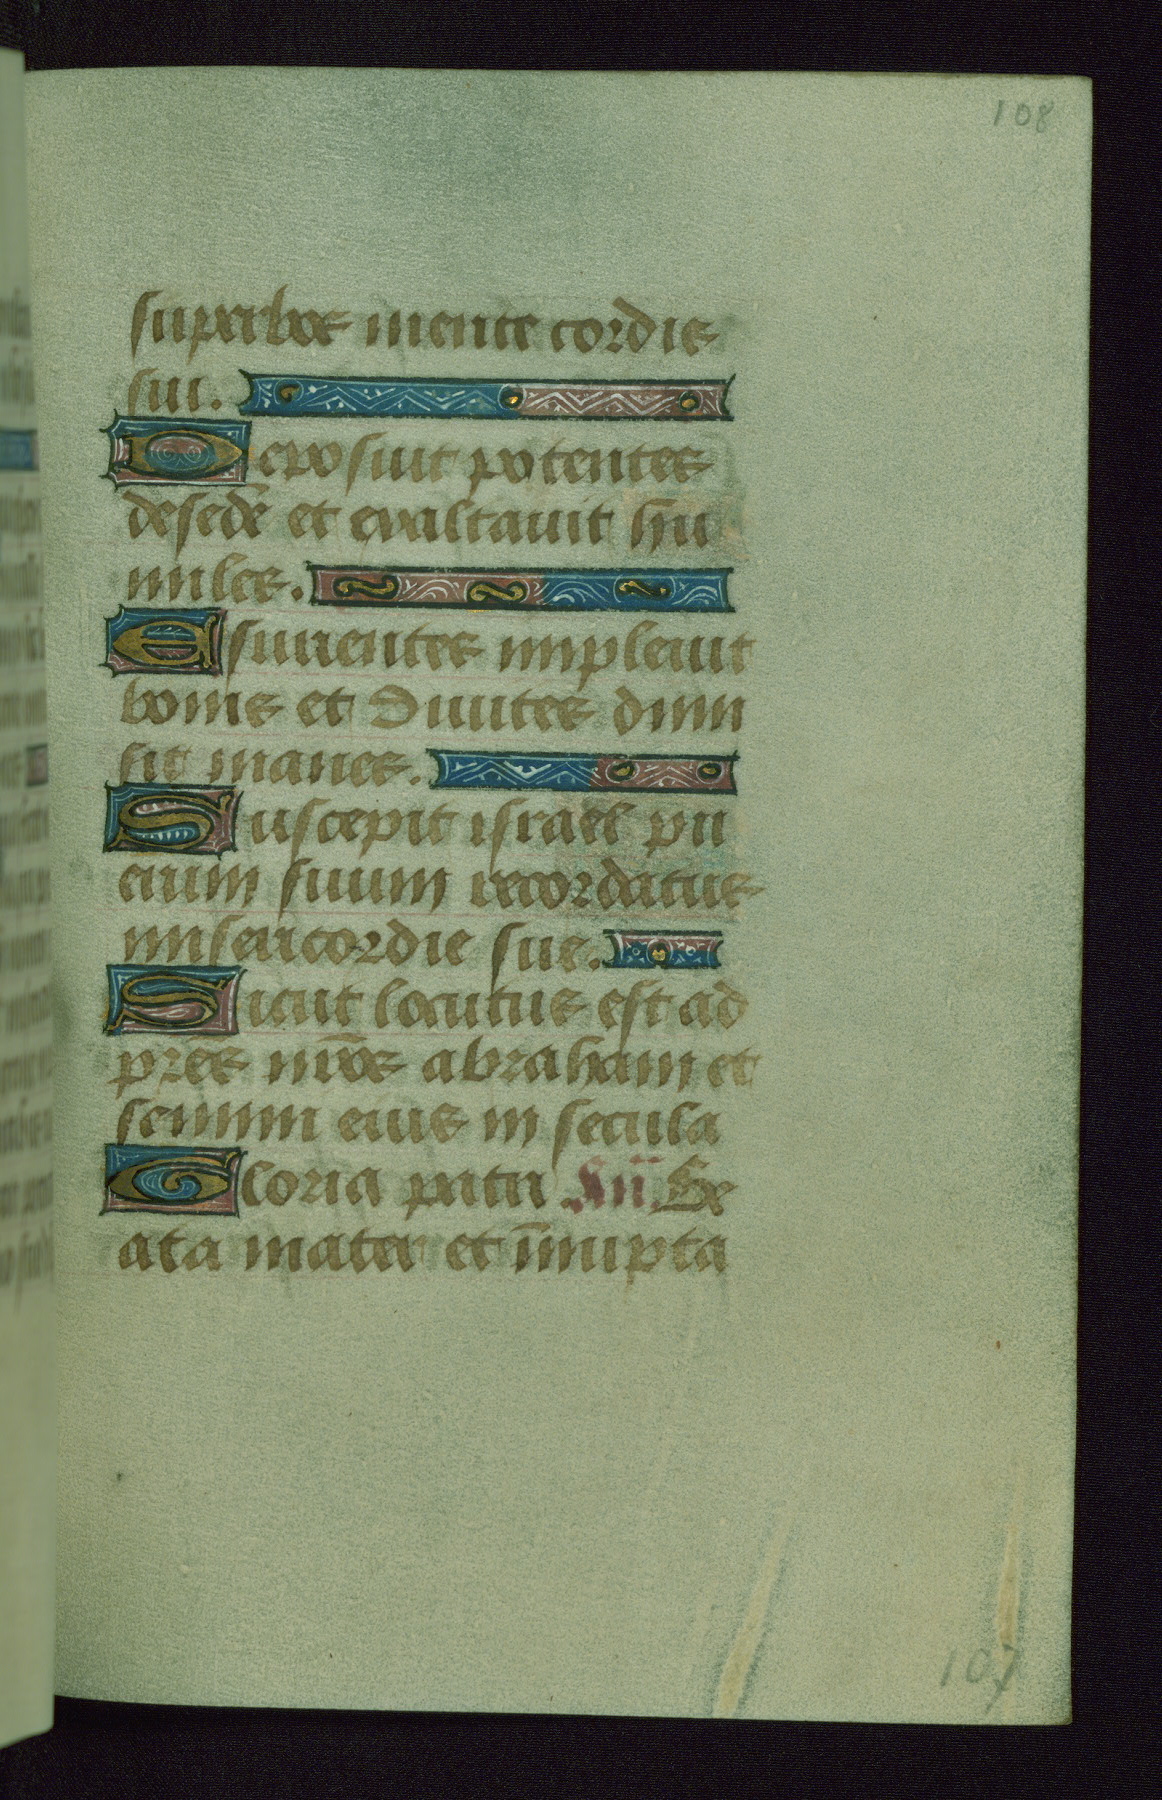 108
superbos mente cordis
sui.
Deposuit potentes
desedē et exaltavit hu
miles.
Esurientes implevit
bonis et Divites dimi
sit inanes.
Suscepit israel pu
erum suum recordatus
misericordie sue.
Sicut locutus est ad
prēs nr̄os abraham et
semini eius in secula
Gloria patri
ata mater et īnupta
107